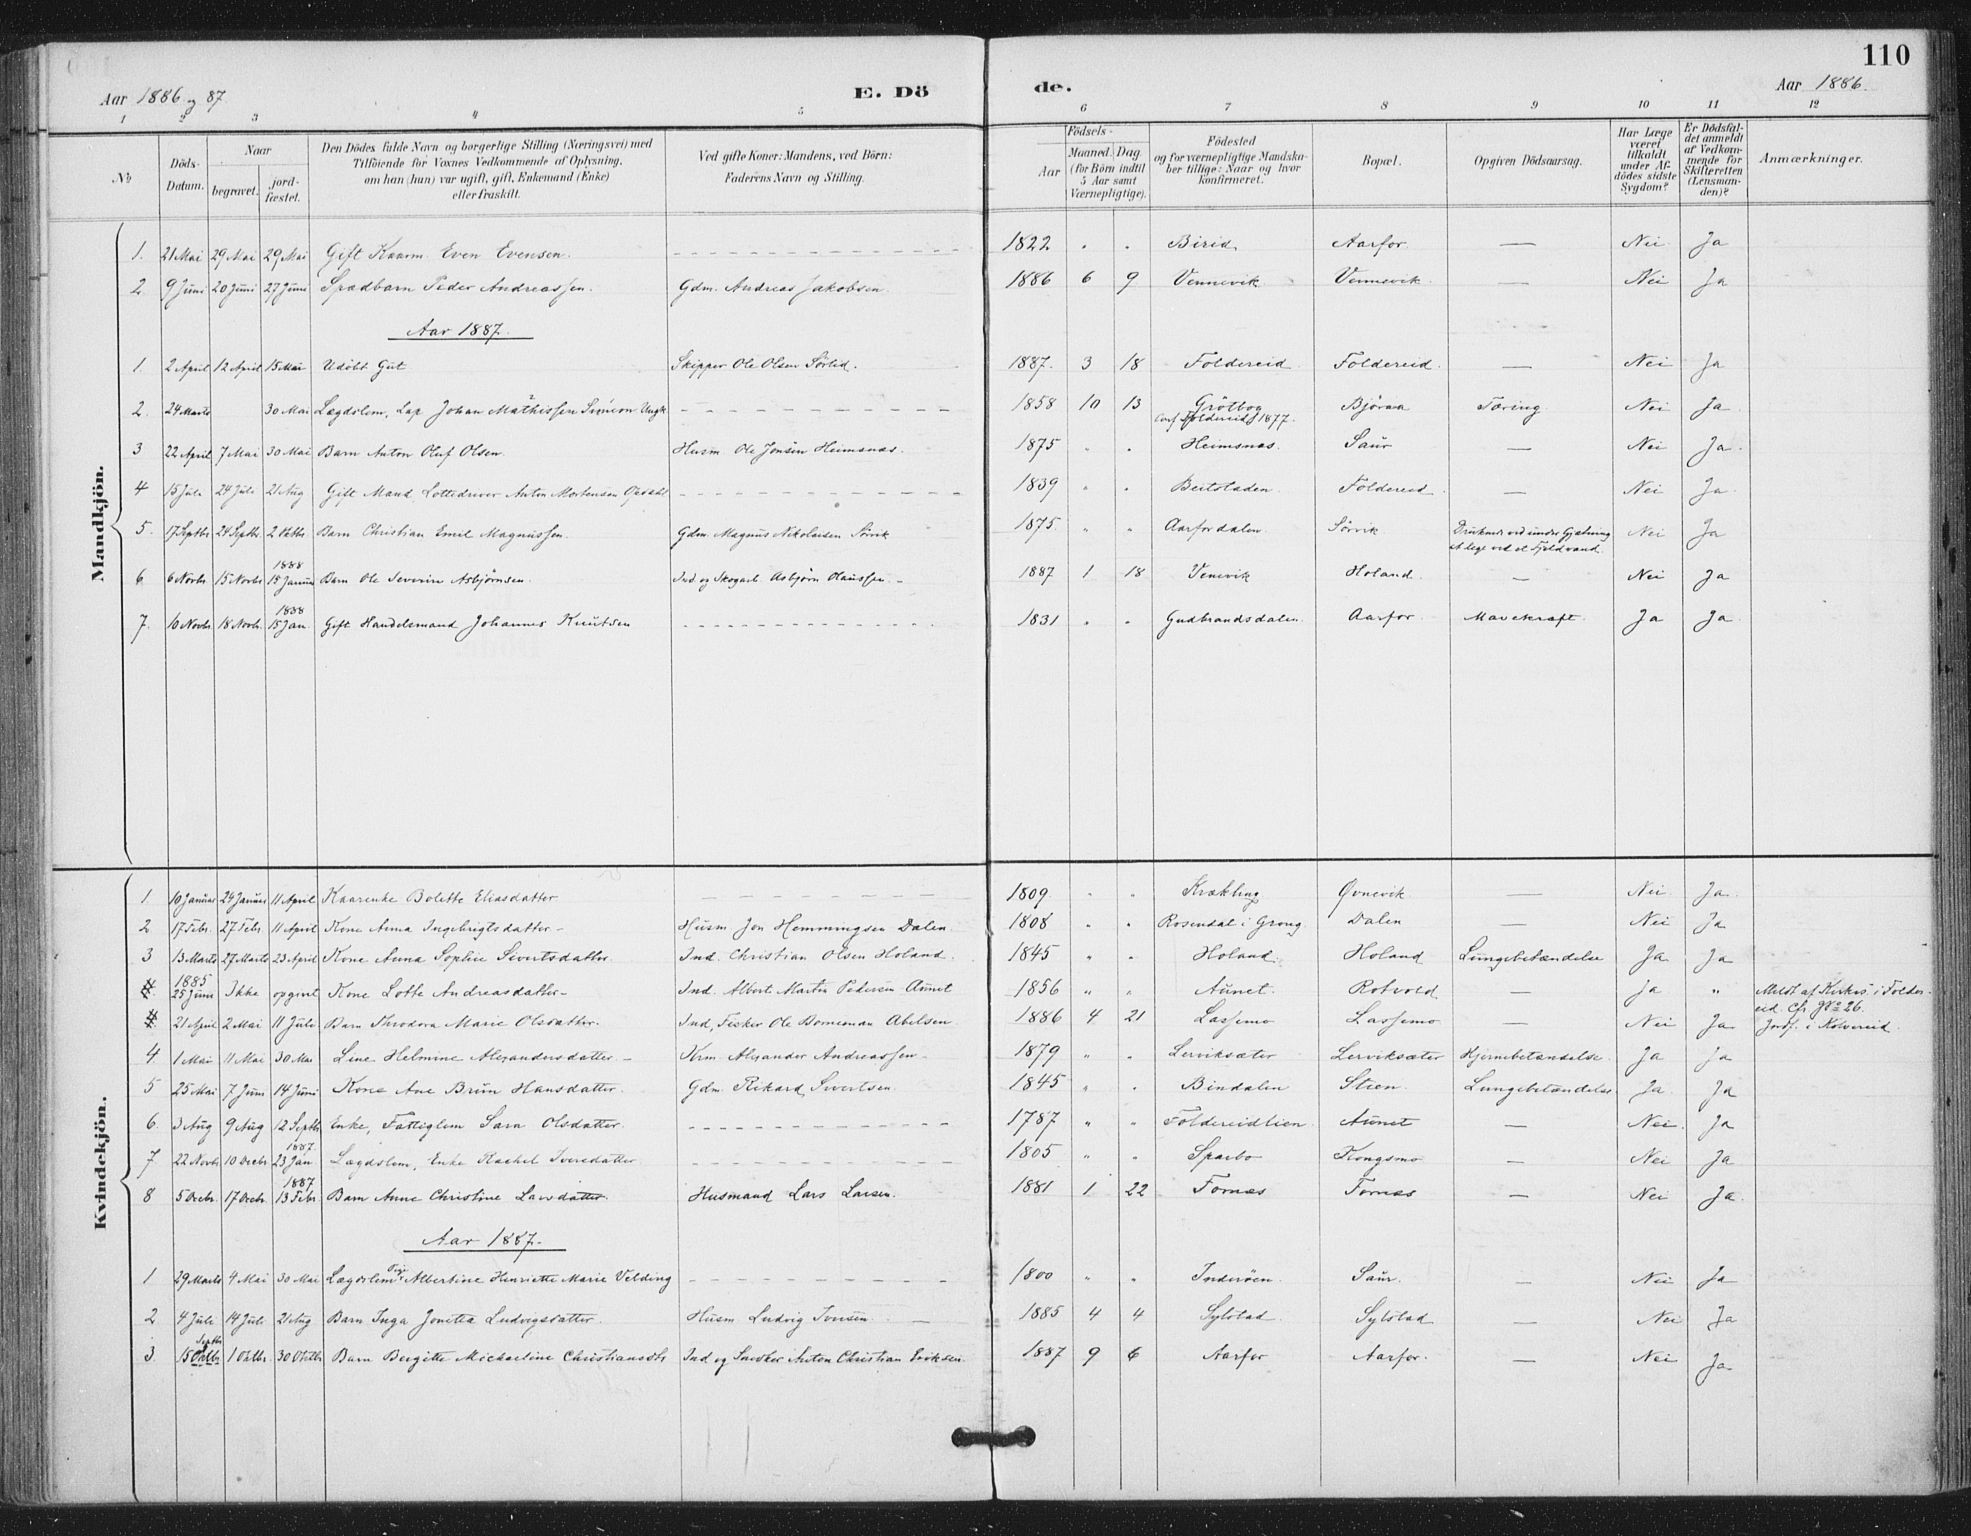 110
Aar 1886 og 87
E. Dö de.
Aar 1886.
1 2 3 4 5 6 7 8 9 10 11 12
No
Döds-Datum.
Naar
begravet.
jord-fæstet.
Den Dödes fulde Navn og borgerlige Stilling (Næringsvei) med
Tilföiende for Voxnes Vedkommende af Oplysning,
om han (hun) var ugift, gift, Enkemand (Enke)
eller fraskilt.
Ved gifte Koner: Mandens, ved Börn:
Faderens Navn og Stilling.
Födsels-
Aar
Maaned. Dag.
(for Börn indtil
5 Aar samt
Værnepligtige).
Födested
og for værnepligtige Mandska-
ber tillige: Naar og hvor
konfirmeret.
Bopæl.
Opgiven Dödsaarsag.
Har Læge
været
tilkaldt
under Af-
dödes sidste
Sygdom?
Er Dödsfal-
det anmeldt
af Vedkom-
mende for
Skifteretten
(Lensman-
den)?
Anmærkninger.
Mandkjön.
1. 21 Mai 29 Mai 29 Mai Gift Kaarm. Even Evensen. 1822 " " Birid Aarfor — Nei Ja
2. 9 Juni 20 Juni 27 Juni Spædbarn Peder Andreassen. Gdm. Andreas Jakobsen. 1886 6 9 Vennevik Vennevik — Nei Ja
Aar 1887.
1 2 April 12 April 15 Mai Udöbt Gut Skipper Ole Olsen Sörlid. 1887. 3 18 Foldereid Foldereid. — Nei Ja
2. 24 Marts 30 Mai Lægdslem, Lap Johan Mathissen Simeon Ungk 1858 10 13 Grötbog Björaa Tæring. Nei Ja.
Conf. Foldereid 1877.
3 22 April 7 Mai 30 Mai Barn Anton Oluf Olsen. Husm. Ole Jensen Heimsnæs. 1875 " " Heimsnæs. Saur — Nei Ja.
4 15 Juli 24 Juli 21 Aug Gift Mand Lottedriver Anton Mortensen Opdahl 1839 " " Beitstaden. Foldereid — Nei Ja.
5. 17 Septbr 24 Septbr. 2 Oktbr Barn Christian Emil Magnussen. Gdm. Magnus Nikolaisen Sörvik 1875. " " Aarfordalen Sörvik Druknet ved under Gjætning Nei Ja
at lege ved et Fjeldvand.
1888
6 6 Novbr 15 Novbr 15 Januar Barn Ole Severin Asbjörnsen. Ind. og Skogarb. Asbjörn Olaussen. — 1887 1 18 Venevik Holand. — Nei Ja
1888
7. 10 Novbr. 18 Novbr. 15 Jan. Gift Handelsmand Johannes Knutsen 1831 " " Gudbrandsdalen. Aarfor. Mavekræft. Ja Ja.
Kvindekjön.
1. 10 Januar 24 Januar 11 April Kaarenke Bolette Eliasdatter 1809. " " Krækling Øvnevik — Nei. Ja.
2 17 Febr. 27 Febr 11 April Kone Anna Ingebrigtsdatter — Husm Jon Hemmingsen Dalen. 1808 " " Rosendal i Grong. Dalen — Nei Ja
3 13 Marts 27 Marts 23 April Kone Anna Sophie Sivertsdatter. Ind. Christian Olsen Holand. 1845 " " Holand. Holand Lungebetændelse Ja Ja
1885
4. 25 Juni Ikke opgivet Kone Lotte Andreasdatter — Ind. Albert Martin Pedersen Aunet 1856 " " Aunet. Rotvold — Ja " Meldt af Kirkes. i Folder-
eid. Cfr. No 26.
21 April 2 Mai 11 Juli Barn Theodora Marie Olsdatter. Ind, Fisker Ole Borneman Abelsen 1886 4 21 Lassemo Lassemo — Nei Ja Indf. i Kolvereid.
4 1 Mai 11 Mai 30 Mai Line Helmine Alexandersdatter — Alexander Andreassen. 1879 " " Lerviksæter Lerviksæter Hjernebetændelse. Ja Ja
5 25 Mai 7 Juni 14 Juni Kone Ane Brun Hansdatter. Gdm. Rikard Sivertsen 1845 " " Bindalen Steen. Lungebetændelse Ja. Ja
6. 3 Aug 9 Aug 12 Septbr Enke, Fattiglem Sara Olsdatter. 1787 " " Foldereidlien Aunet — Nei. Ja
1887.
7 22 Novbr 10 Decbr 23 Jan Lægdslem, Enke Rachel Iversdatter 1805 " " Sparbo Kongsmo — Nei Ja
1887
8 5 Decbr. 17 Decbr 13 Febr. Barn Anne Christine Larsdatter. Husmand Lars Larsen. 1881 1 22 Fornæs Fornæs — Nei Ja.
Aar 1887.
1 29 Marts 4 Mai 30 Mai Lægdslem Pige Albertine Henriette Marie Velding 1800 " " Inderöen. Saur. — Nei Ja
2 4 Juli 14 Juli 21 Aug Barn Inga Jonetta Ludvigsdatter. Husm. Ludvig Iversen. — 1885 4 4 Sylstad Sylstad — Nei Ja
Septbr
3. 15 Oktbr 1 Oktbr 30 Oktbr Barn Bergitte Michaeline Christiansdtr Ind og Snedker Anton Christian Eriksen. 1887 9 6 Aarfor Aarfor. — Nei Ja